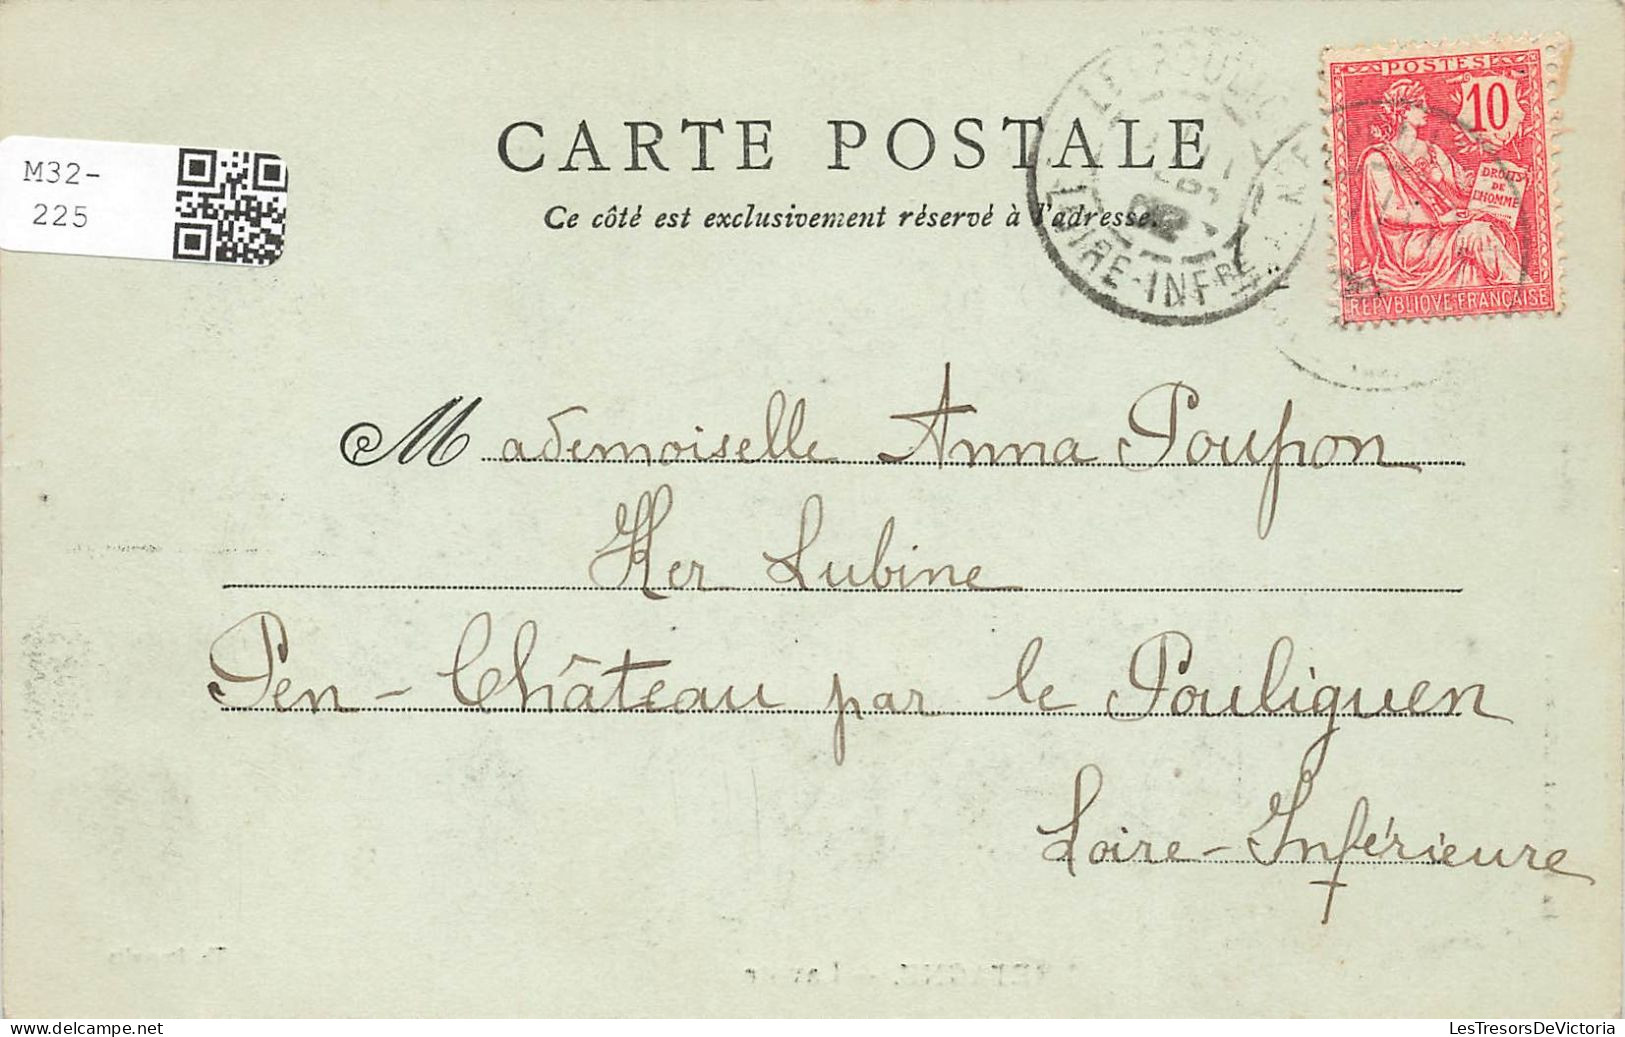 M32-
225
CARTE POSTALE
Ce côté est exclusivement réservé à l'adresse.
LE POULIG
LOIRE-INFRE
POSTES
10
DROITS
DE
L'HOMME
REPVBLIQVE FRANÇAISE
Mademoiselle Anna Poupon
Ker Lubine
Pen-Château par le Pouliguen
Loire-Inférieure
LesTresorsDeVictoria